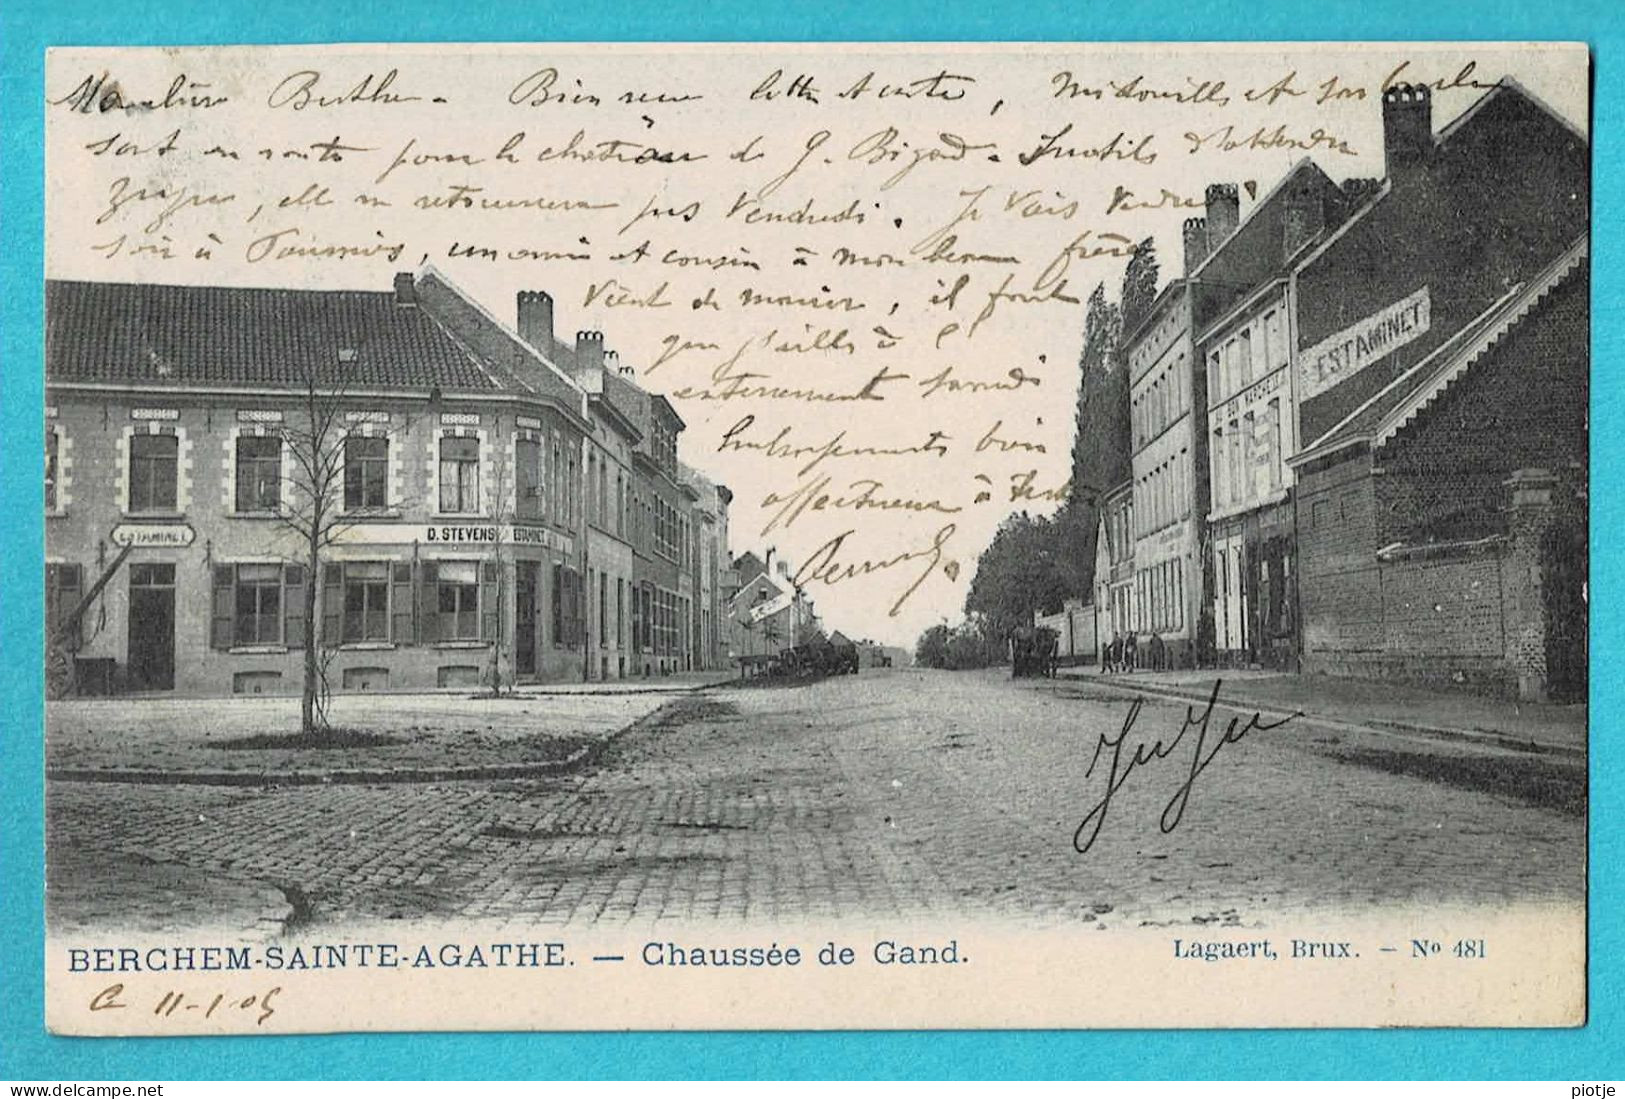 Berthe - Bien reçu lettre et carte,
sont en route pour le château de G. Bigard - Inutile d'attendre
Zuzu, elle ne retournera pas Vendredi. Je vais
soir à Tournai, un ami et cousin à mon beau frère
Vient de mourir, il faut
que j'aille à l'
enterrement samedi
Embrassements bien
affectueux à
ESTAMINET
ESTAMINET
D. STEVENS ESTAMINET
BERCHEM-SAINTE-AGATHE. — Chaussée de Gand.
Lagaert, Brux. — No 481
Ce 11-1-05
piotje